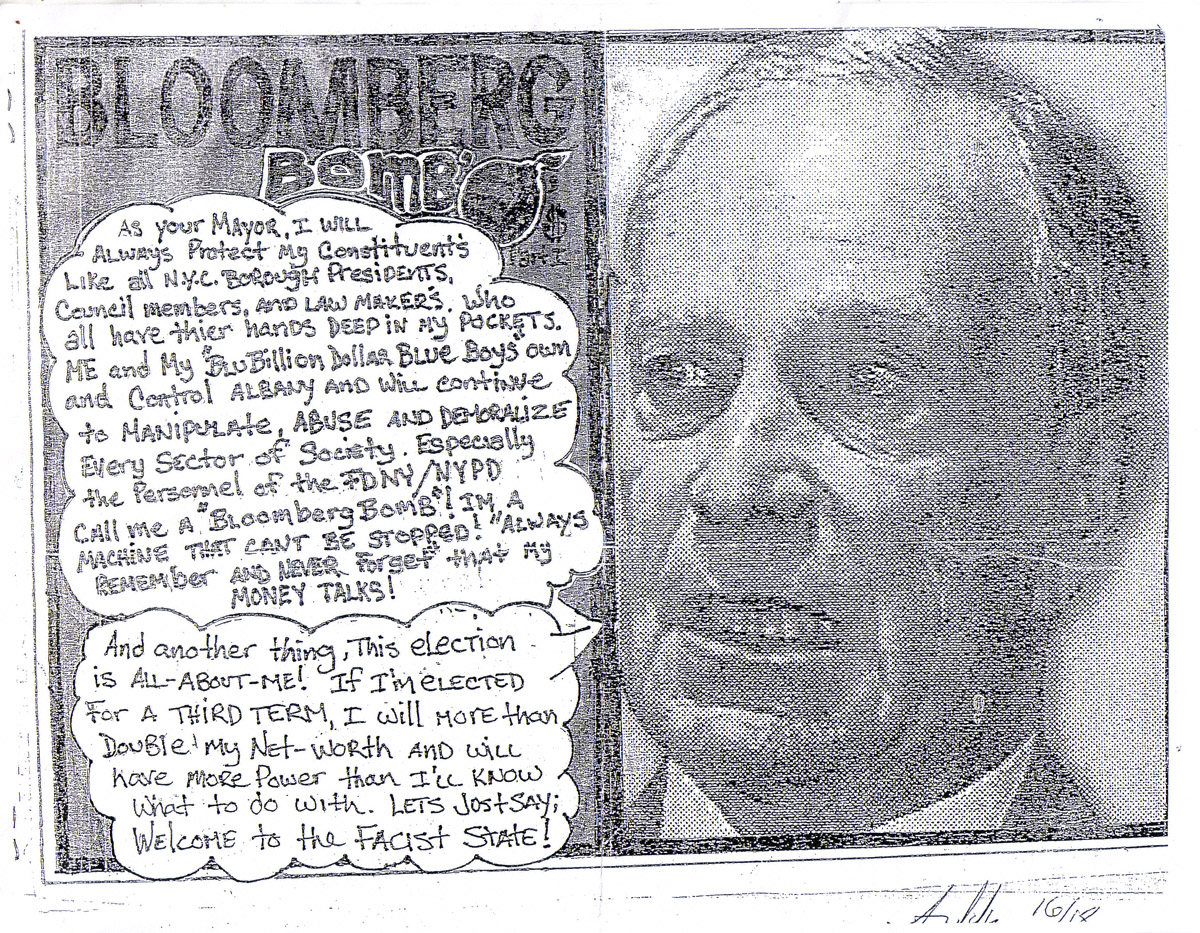 BLOOMBERG
BOMB'
$
Part I
As your Mayor, I will
ALWAYS Protect My Constituent's
Like all N.Y.C. BOROUGH PresiDENTS,
Council members, AND LAW MAKER'S. Who
all have thier hands DEEP IN My POCKETS.
ME and My "BluBillion Dollar Blue Boys" own
and Control ALBANY AND Will continue
to MANIPULATE, ABUSE AND DEMORALIZE
Every Sector of Society. Especially
the Personnel of the FDNY/NYPD
Call me A "Bloomberg Bomb"! IM A
MACHINE THAT CANT BE STOPPED! "ALWAYS
REMEMber AND NEVER Forget" that My
MONEY TALKS!
And another thing, This election
is ALL-ABOUT-ME! If I'm eLECTED
For A THIRD TERM, I will MORE than
DouBle' My Net-Worth AND will
have MORE Power than I'LL KNOW
What to do with. LETS JUST SAY;
Welcome to the FACIST STATE!
16/18